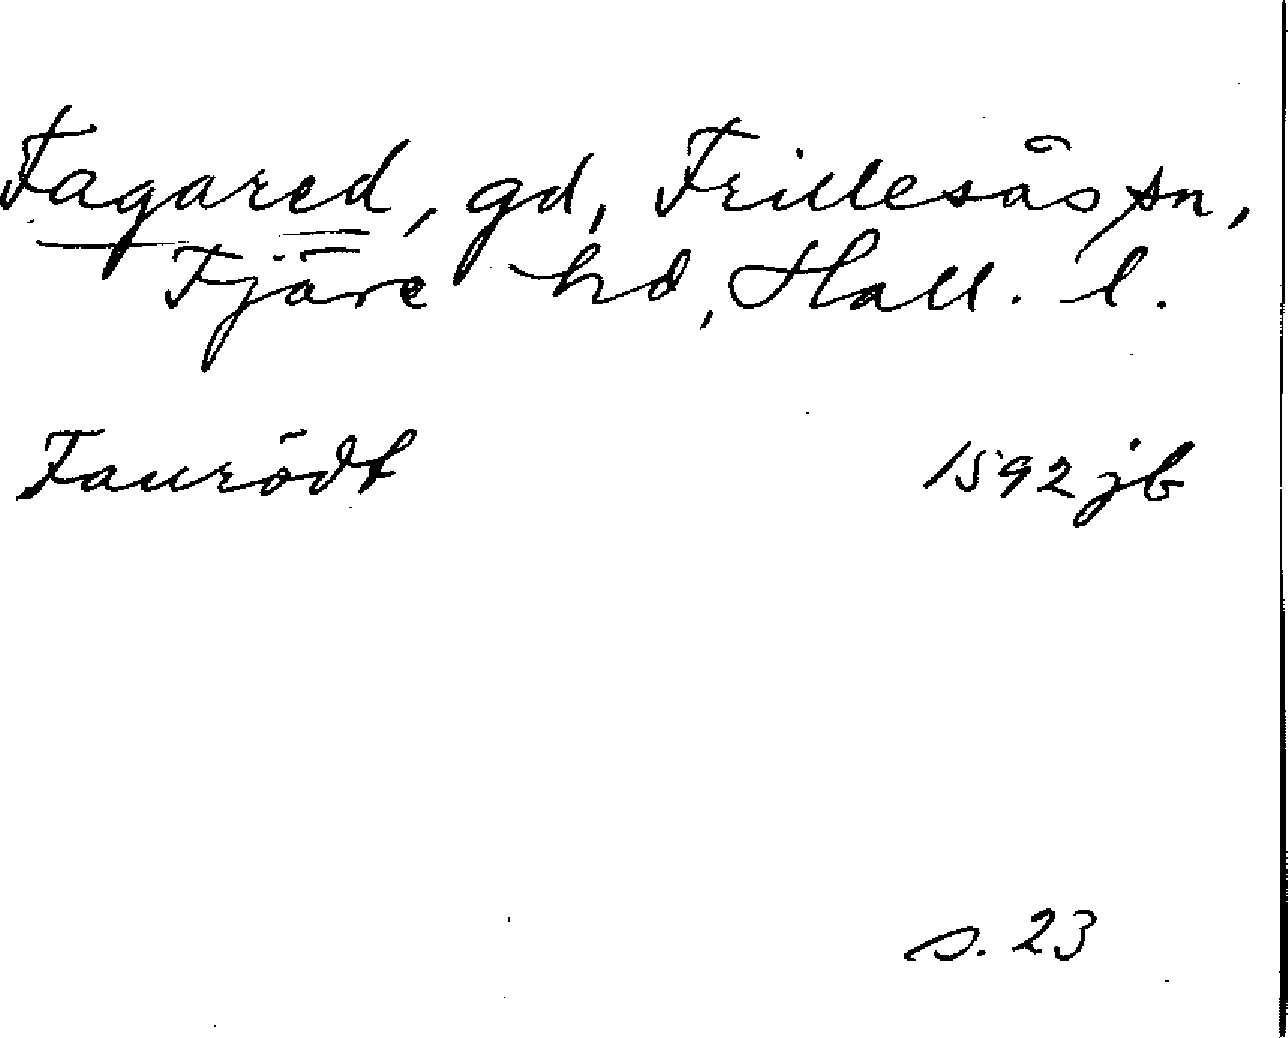 Fagared, gd, Frillesås sn,
Fjäre hd, Hall. l.
Faurödt 1592 jb
s. 23